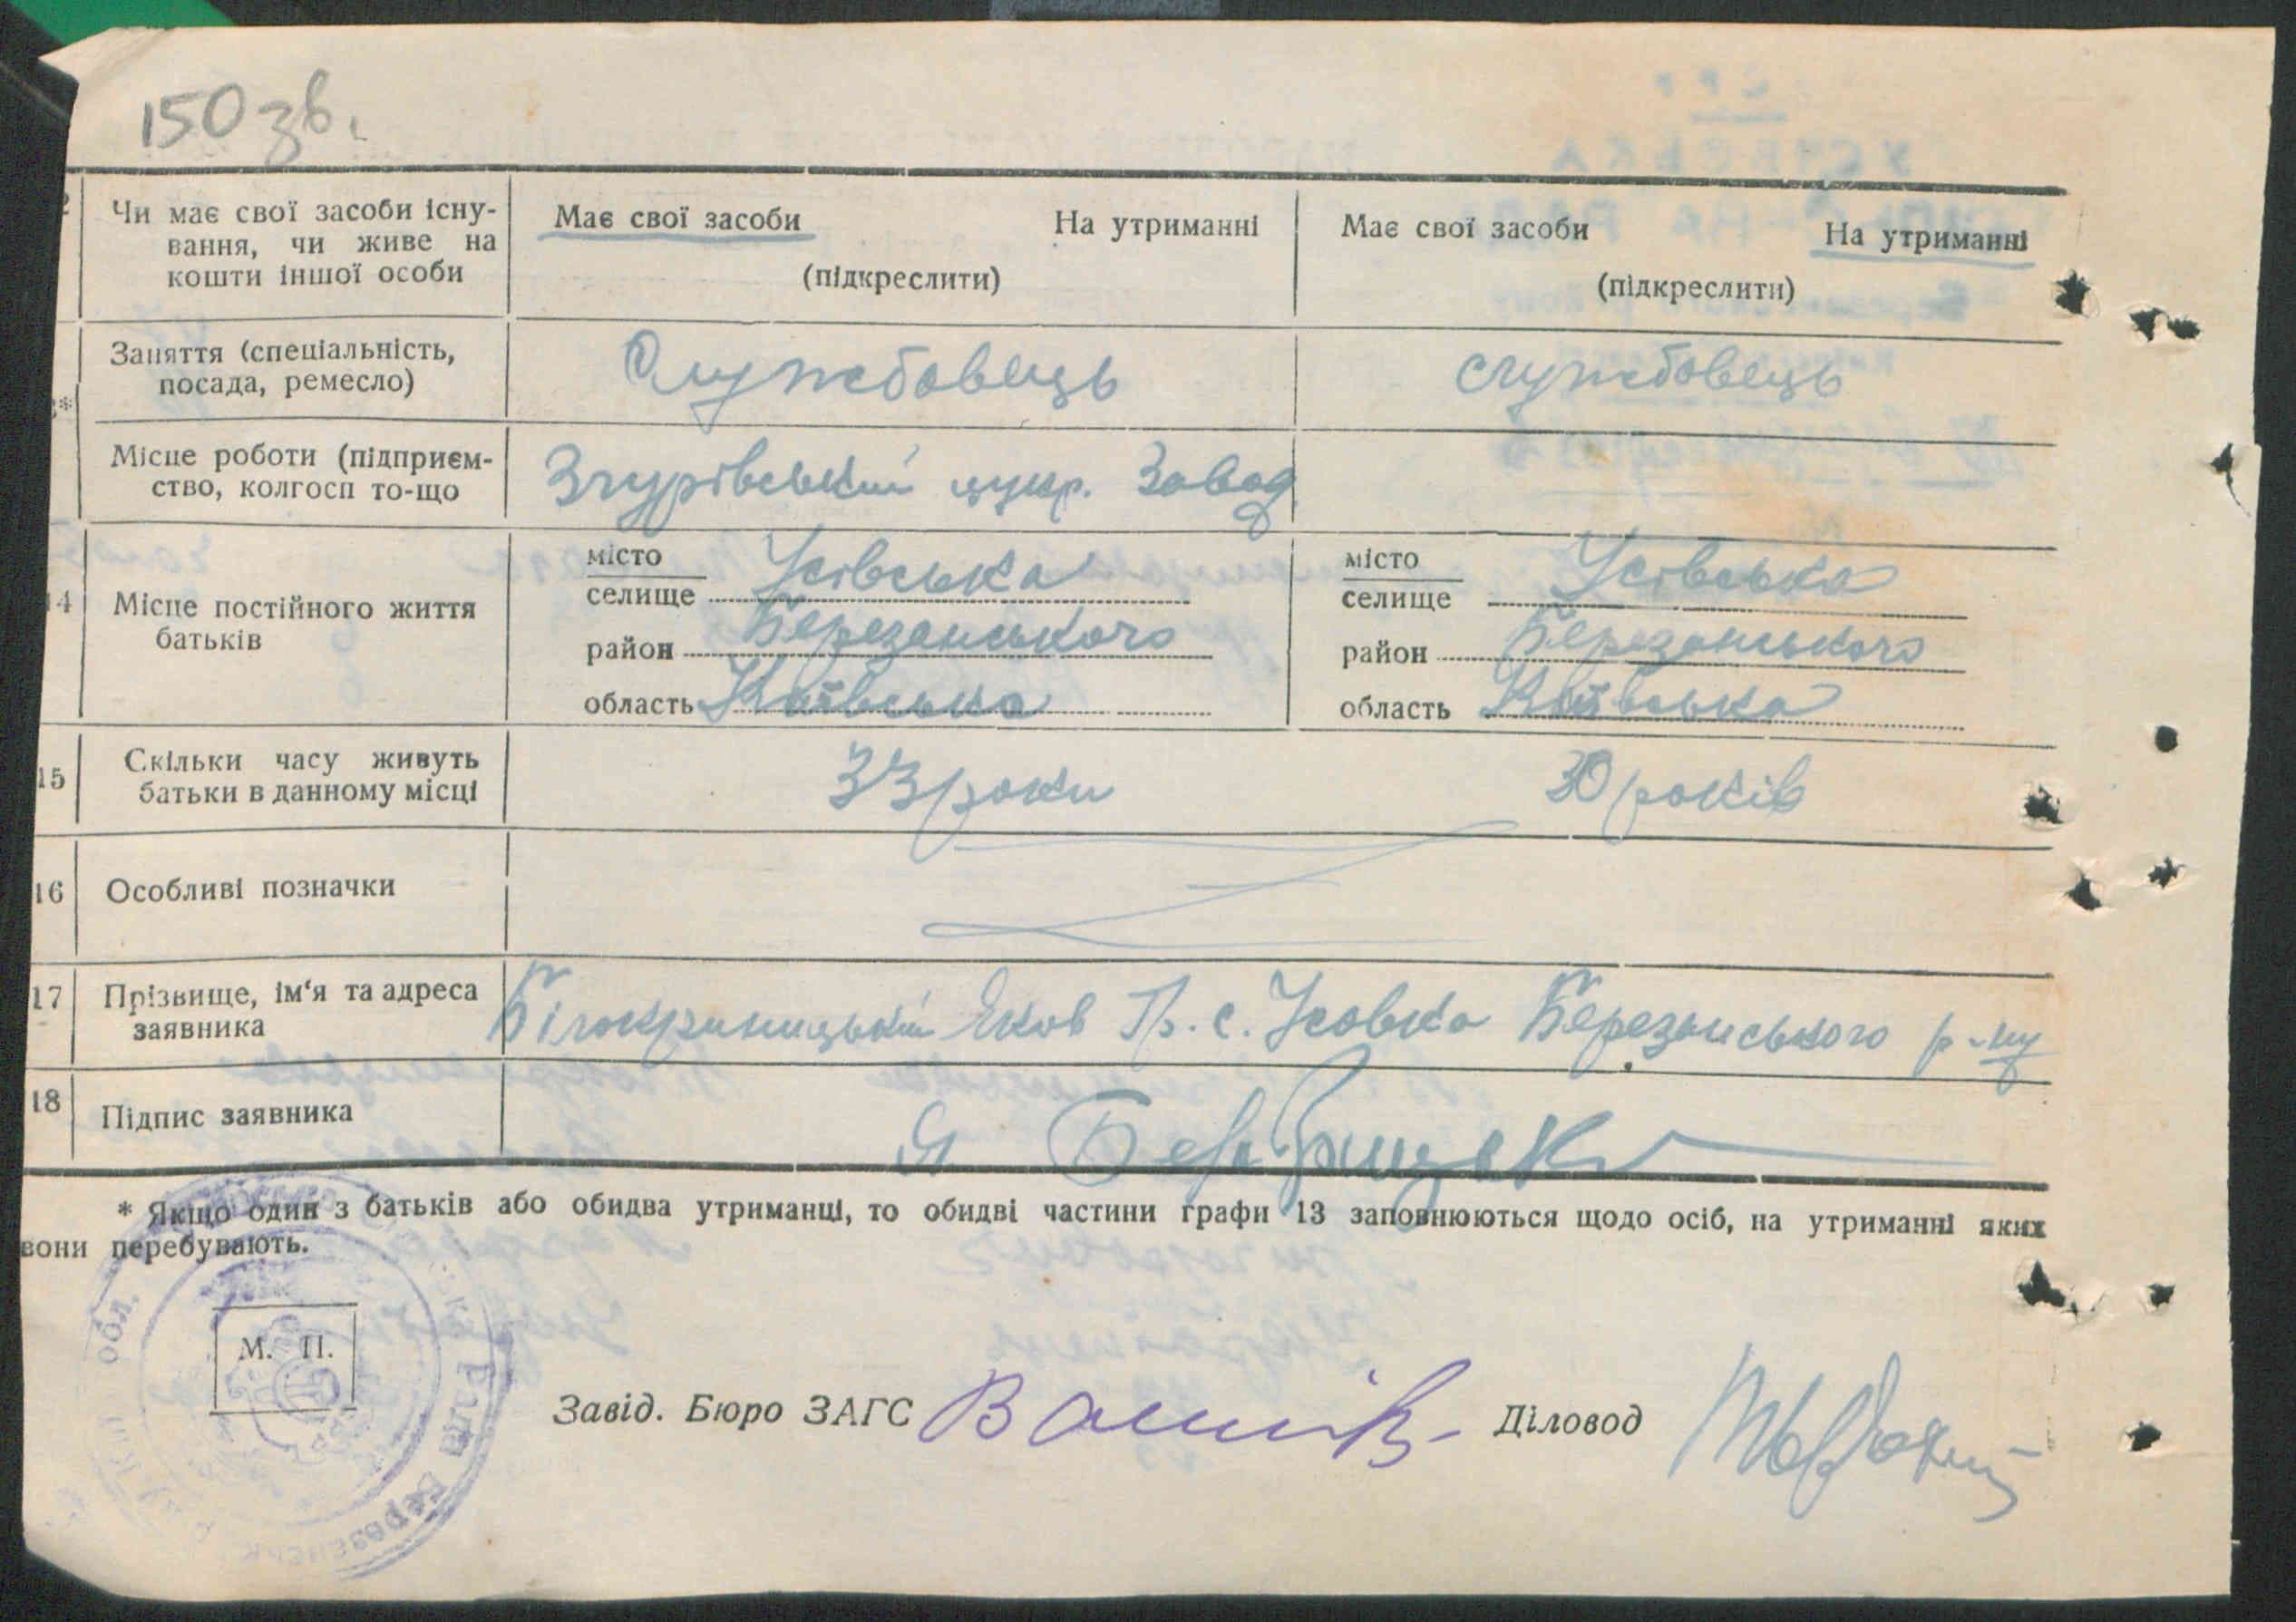 150 зв.
Чи має свої засоби існу-
вання, чи живе на
кошти іншої особи
Має свої засоби На утриманні
(підкреслити)
Має свої засоби На утриманні
(підкреслити)
Заняття (спеціальність,
посада, ремесло)
Службовець
службовець
Місце роботи (підприєм-
ство, колгосп то-що
Згурівський цукр. Завод
14 Місце постійного життя
батьків
місто
селище Усівська
район Березанського
область Київська
місто
селище Усівська
район Березанського
область Київська
15 Скільки часу живуть
батьки в данному місці
33 роки
30 років
16 Особливі позначки
17 Прізвище, ім'я та адреса
заявника
Білокриницький Яков Гр. с. Усовка Березанського р-ну
18 Підпис заявника
* Якщо один з батьків або обидва утриманці, то обидві частини графи 13 заповнюються щодо осіб, на утриманні яких
вони перебувають.
обл.
М. П.
Завід. Бюро ЗАГС Діловод